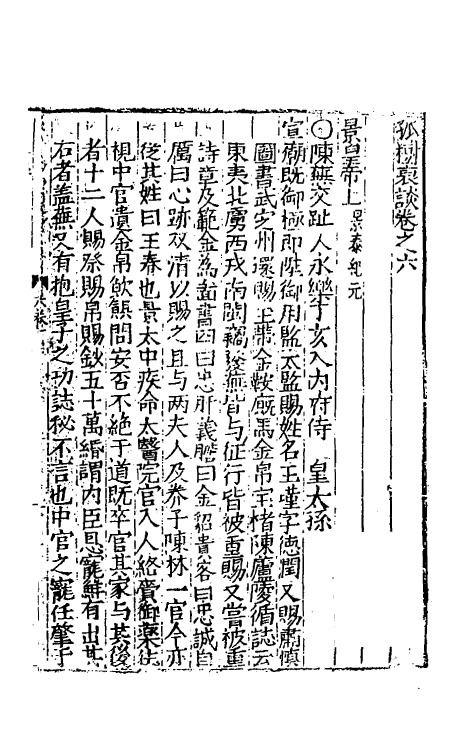 孤樹裒談卷之六
景皇帝上 景泰紀元
〇陳蕪交趾人永樂丁亥入内府侍 皇太孫
宣廟既御極即陞御用監太監賜姓名王瑾字徳潤又賜肅慎
圖書武定州還賜玉帶金鞍廐馬金帛宝楮陳廬陵循誌云
東夷北虜西戎南閩 皆与征行皆被重賜又嘗被重
詩章及範金為圖書四曰忠肝義膽曰金貂貴客曰忠誠自
厲曰心跡双清以賜之且与两夫人及养子陳林一官令亦
從其姓曰王春也景太中疾命太醫院官入人絡賚御藥往
視中官遺金帛飲饌問安否不絶于道既卒官其家与其後
者十二人賜祭賜帛賜鈔五十萬緡謂内臣恩寵鮮有出其
右者蓋蕪又有抱皇子之功誌秘不言也中官之寵任肇于
六卷